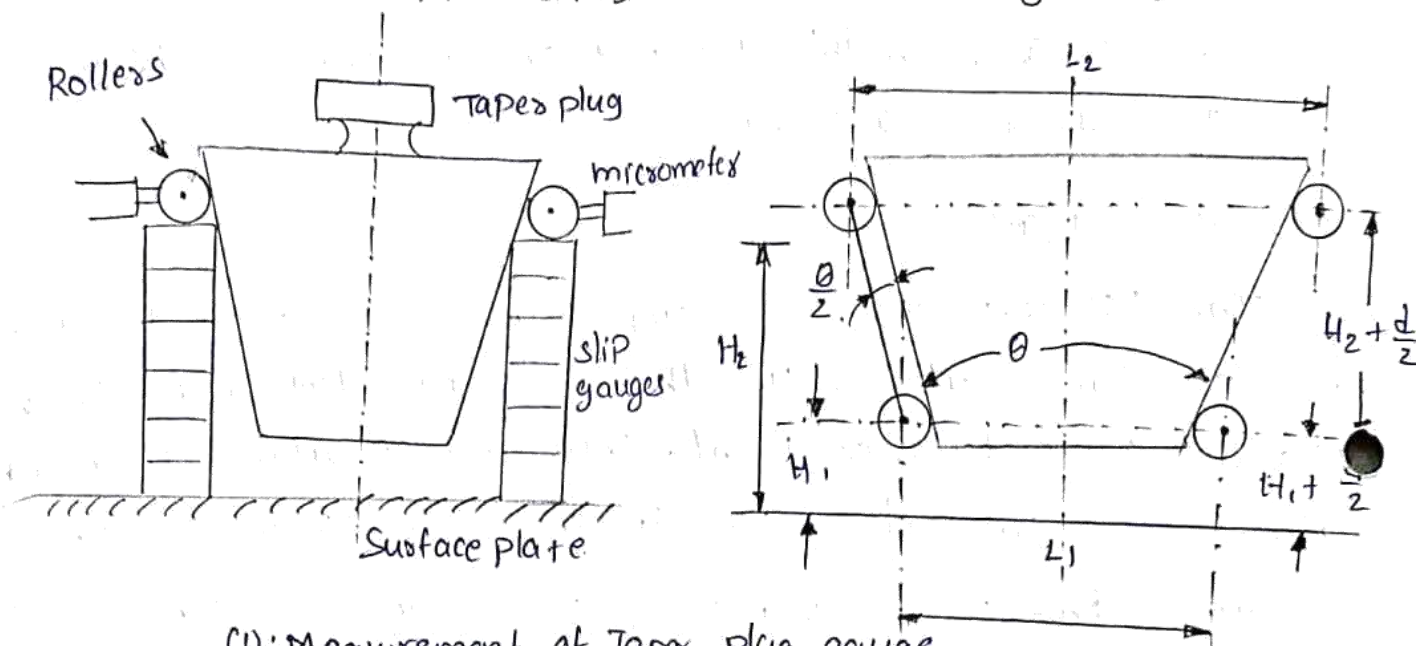 Rollers
Taper plug
micrometer
slip
gauges
Surface plate
L2
θ/2
θ
H2
H1
H2 + d/2
H1 +
2
L1
(1): Measurement of Taper plug gauge